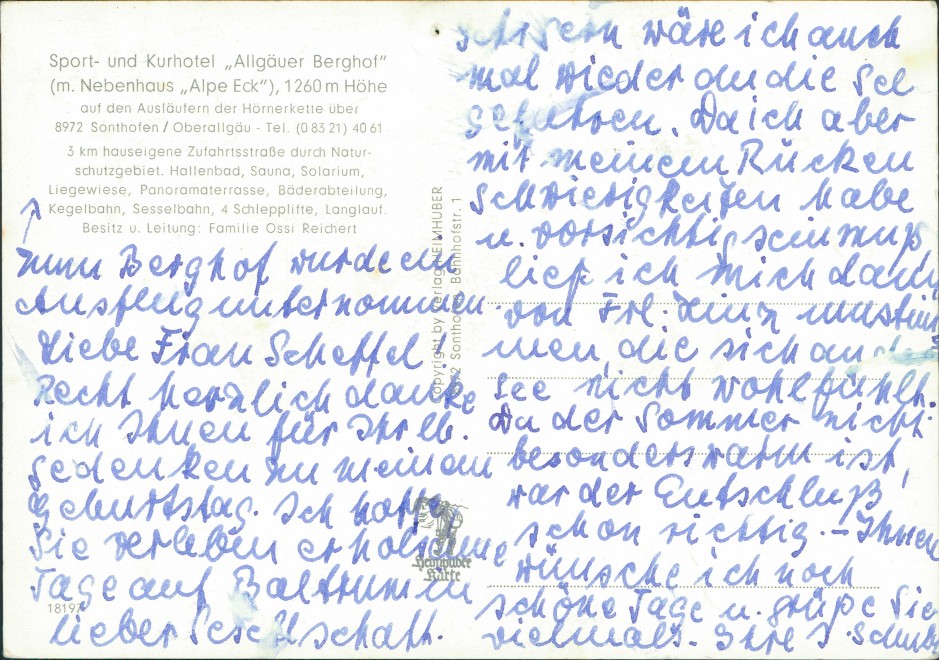 Sport- und Kurhotel „Allgäuer Berghof"
(m. Nebenhaus „Alpe Eck"), 1260 m Höhe
auf den Ausläufern der Hörnerkette über
8972 Sonthofen / Oberallgäu - Tel. (0 83 21) 40 61
3 km hauseigene Zufahrtsstraße durch Natur-
schutzgebiet. Hallenbad, Sauna, Solarium,
Liegewiese, Panoramaterrasse, Bäderabteilung,
Kegelbahn, Sesselbahn, 4 Schlepplifte, Langlauf.
Besitz u. Leitung: Familie Ossi Reichert
zum Berghof wurde ein
Ausflug unternommen.
Liebe Frau Scheffel!
Recht herzlich danke
ich Ihnen für Ihr lb.
Gedenken zu meinem
Geburtstag. Ich hoffe
Sie verleben erholsame
Tage auf Baltrum in
lieber Gesellschaft.
18197
Copyright by Verlag HEIMHUBER
8972 Sonthofen Bahnhofstr. 1
Heimhuber
Karte
Sehr gern wäre ich auch
mal wieder an die See
gefahren. Da ich aber
mit meinem Rücken
Schwierigkeiten habe
u. vorsichtig sein muß
ließ ich mich dann
von Frl. umstim
men, die sich an der
See nicht wohlfühlt.
Da der Sommer nicht
besonders warm ist,
war der Entschluß
schon richtig. – Ihnen
wünsche ich noch
schöne Tage u. grüße Sie
vielmals. Ihre